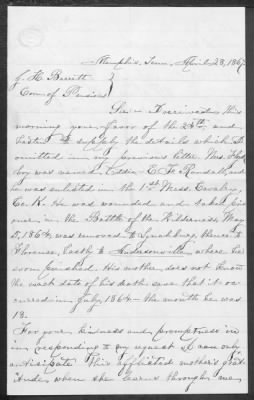 Memphis, Tenn, April 28, 1867
J. H. Barrett
Com. of Pensions
Sir - I received this
morning your favor of the 24th, and
hasten to supply the details which I
omitted in my previous letter. Mrs.
boy was named Eddie E. F. Randall, and
he was enlisted in the 1st Mass. Cavalry,
Co. K. He was wounded and taken pris
oner in the Battle of the Wilderness, May
5, 1864, was removed to Lynchburg, thence to
Florence, lastly to Andersonville, where he
soon perished. His mother does not know
the exact date of his death, save that it oc
curred in July 1864 - the month he was
18.
For your kindness and promptness in
in responding to my request I can only
anticipate this afflicted mother's grat
itude, when she learns through me,